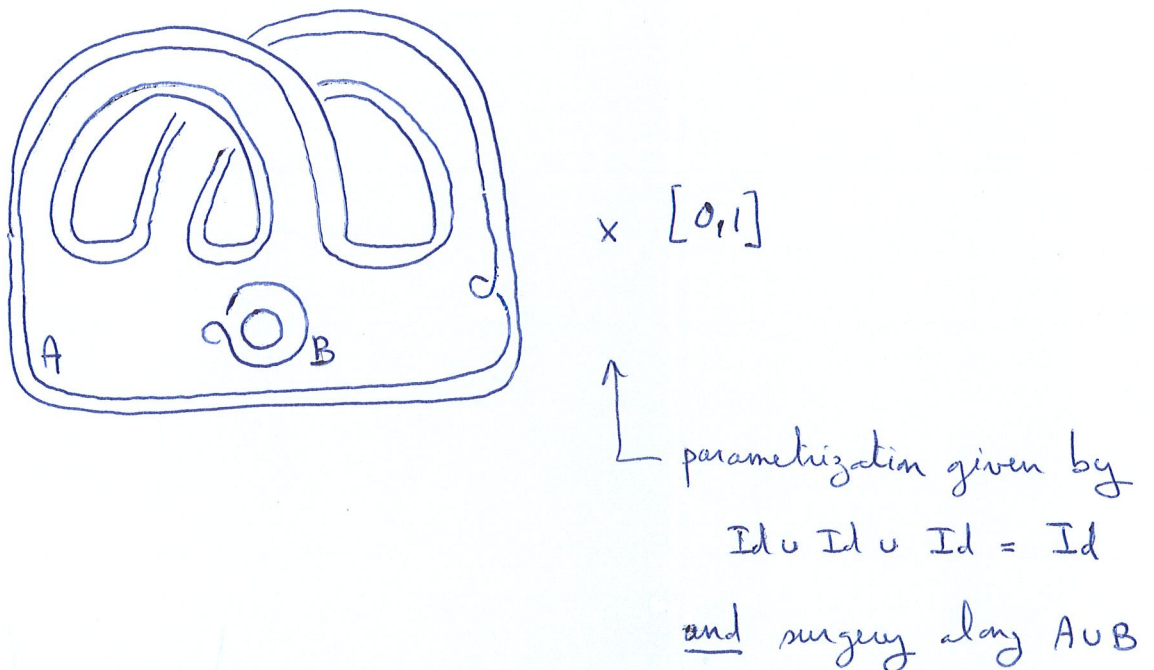 × [0,1]
A
B
parametrization given by
Id ∪ Id ∪ Id = Id
and surgery along A∪B